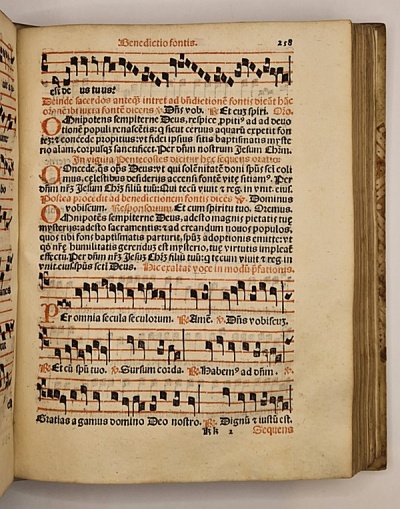 Benedictio fontis. 238
est de us tu us?
Deinde sacerdos anteq̃ intret ad bñdictionē fontis dicāt hãc
orõnē iuxta fontē dicens ℣. Dñs vob. ℟. Et cū spiri. Oro.
OMnipotens sempiterne Deus, respice ꝓpiti⁹ ad ad deuo
tionē populi renascētis: q̃ sicut ceruus aquarū expetit fon
tez: ⁊ concede propitius: vt fidei ipsius sitis baptismatis myste
rio alam, corpusq̃ sanctificet. Per dñm nostrum Jesum Chr̃m.
In vigilia Pentecostes dicitur hec sequens oratio:
COncede, q̃s op̃s Deus: vt qui solēnitatē doni sp̃us sc̃i coli
mus, celestibus desiderijs accensi fontē vite sitiam⁹. Per
dñm nr̃z Jesum Chr̃z filiū tuū: Qui tecū viuit ⁊ reg. in vnit. eius.
Postea procedit ad benedictionem fontis dicēs ℣. Dominus
vobiscum. Responsorium. Et cum spiritu tuo. Oremus.
OMnipotēs sempiterne Deus, adesto magnę pietatis tuę
mysterijs: adesto sacramentis: ⁊ ad creandum nouos populos,
quos tibi fons baptismatis parturit, sp̃uz adoptionis emitte: vt
qd̃ nr̃ę humilitatis gerenduz est mysterio, tuę virtutis impleat̃
effectu. Per dñm nr̃z Jesuz Chr̃z filiū tuū: q̃ tecum viuit ⁊ reg. in
vnit. eiusdē sp̃us sc̃ti Deus. Hic exaltat voce in modū p̃fationis.
PEr omnia secula seculorum. ℟. Amē. ℣. Dñs vobiscuz.
℟. Et cū sp̃u tuo. ℣. Sursum corda. ℟. Habem⁹ ad dñm. ℣.
Gratias a gamus domino Deo nostro. ℟. Dignū ⁊ iustū est.
kk 2 Sequens